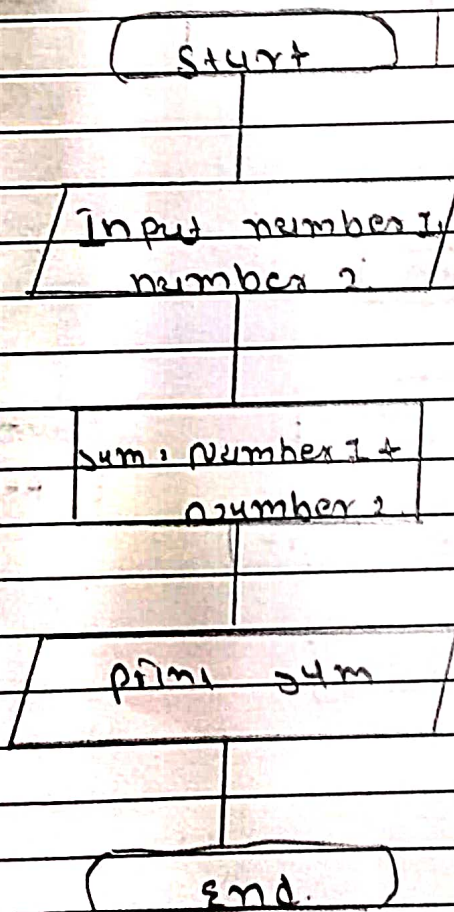 Start
Input number 1,
number 2.
sum = Number 1 +
number 2.
print sum
End.